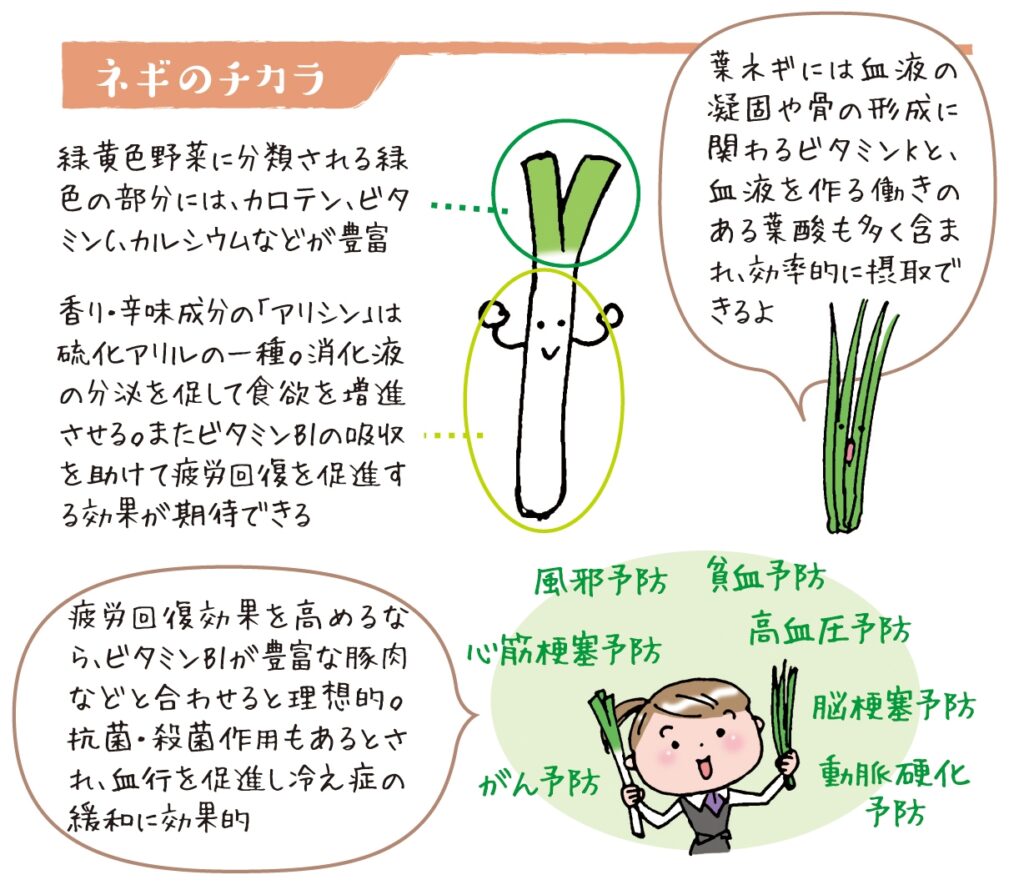 ネギのチカラ
緑黄色野菜に分類される緑
色の部分には、カロテン、ビタ
ミンC、カルシウムなどが豊富
香り・辛味成分の「アリシン」は
硫化アリルの一種。消化液
の分泌を促して食欲を増進
させる。またビタミンB1の吸収
を助けて疲労回復を促進す
る効果が期待できる
葉ネギには血液の
凝固や骨の形成に
関わるビタミンKと、
血液を作る働きの
ある葉酸も多く含ま
れ、効率的に摂取で
きるよ
疲労回復効果を高めるな
ら、ビタミンB1が豊富な豚肉
などと合わせると理想的。
抗菌・殺菌作用もあるとさ
れ、血行を促進し冷え症の
緩和に効果的
風邪予防
貧血予防
心筋梗塞予防
高血圧予防
脳梗塞予防
がん予防
動脈硬化
予防